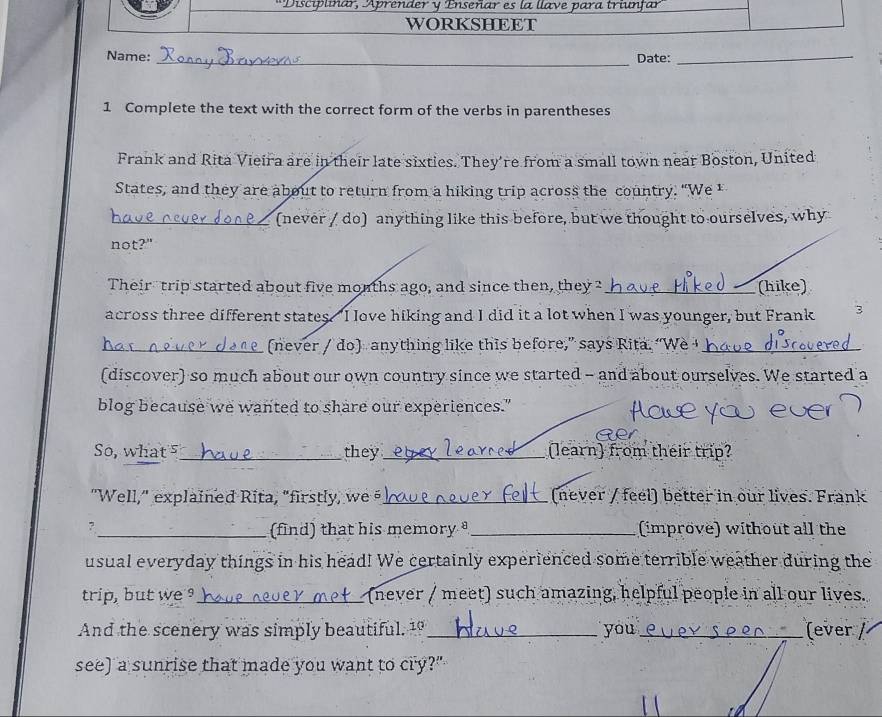 "Disciplinar, Aprender y Enseñar es la llave para triunfar"
WORKSHEET
Name: Ronny Date:
1 Complete the text with the correct form of the verbs in parentheses
Frank and Rita Vieira are in their late sixties. They're from a small town near Boston, United
States, and they are about to return from a hiking trip across the country. "We 1
have never done (never / do) anything like this before, but we thought to ourselves, why
not?"
Their trip started about five months ago, and since then, they 2 have Hiked (hike)
across three different states. "I love hiking and I did it a lot when I was younger, but Frank 3
has never done (never / do) anything like this before," says Rita. "We 4 have discovered
(discover) so much about our own country since we started – and about ourselves. We started a
blog because we wanted to share our experiences." Have you ever?
So, what 5 have they learned (learn) from their trip?
"Well," explained Rita, "firstly, we 6 have never felt (never / feel) better in our lives. Frank
7 (find) that his memory 8 (improve) without all the
usual everyday things in his head! We certainly experienced some terrible weather during the
trip, but we 9 have never met (never / meet) such amazing, helpful people in all our lives.
And the scenery was simply beautiful. 10 Have you ever seen (ever /
see) a sunrise that made you want to cry?"